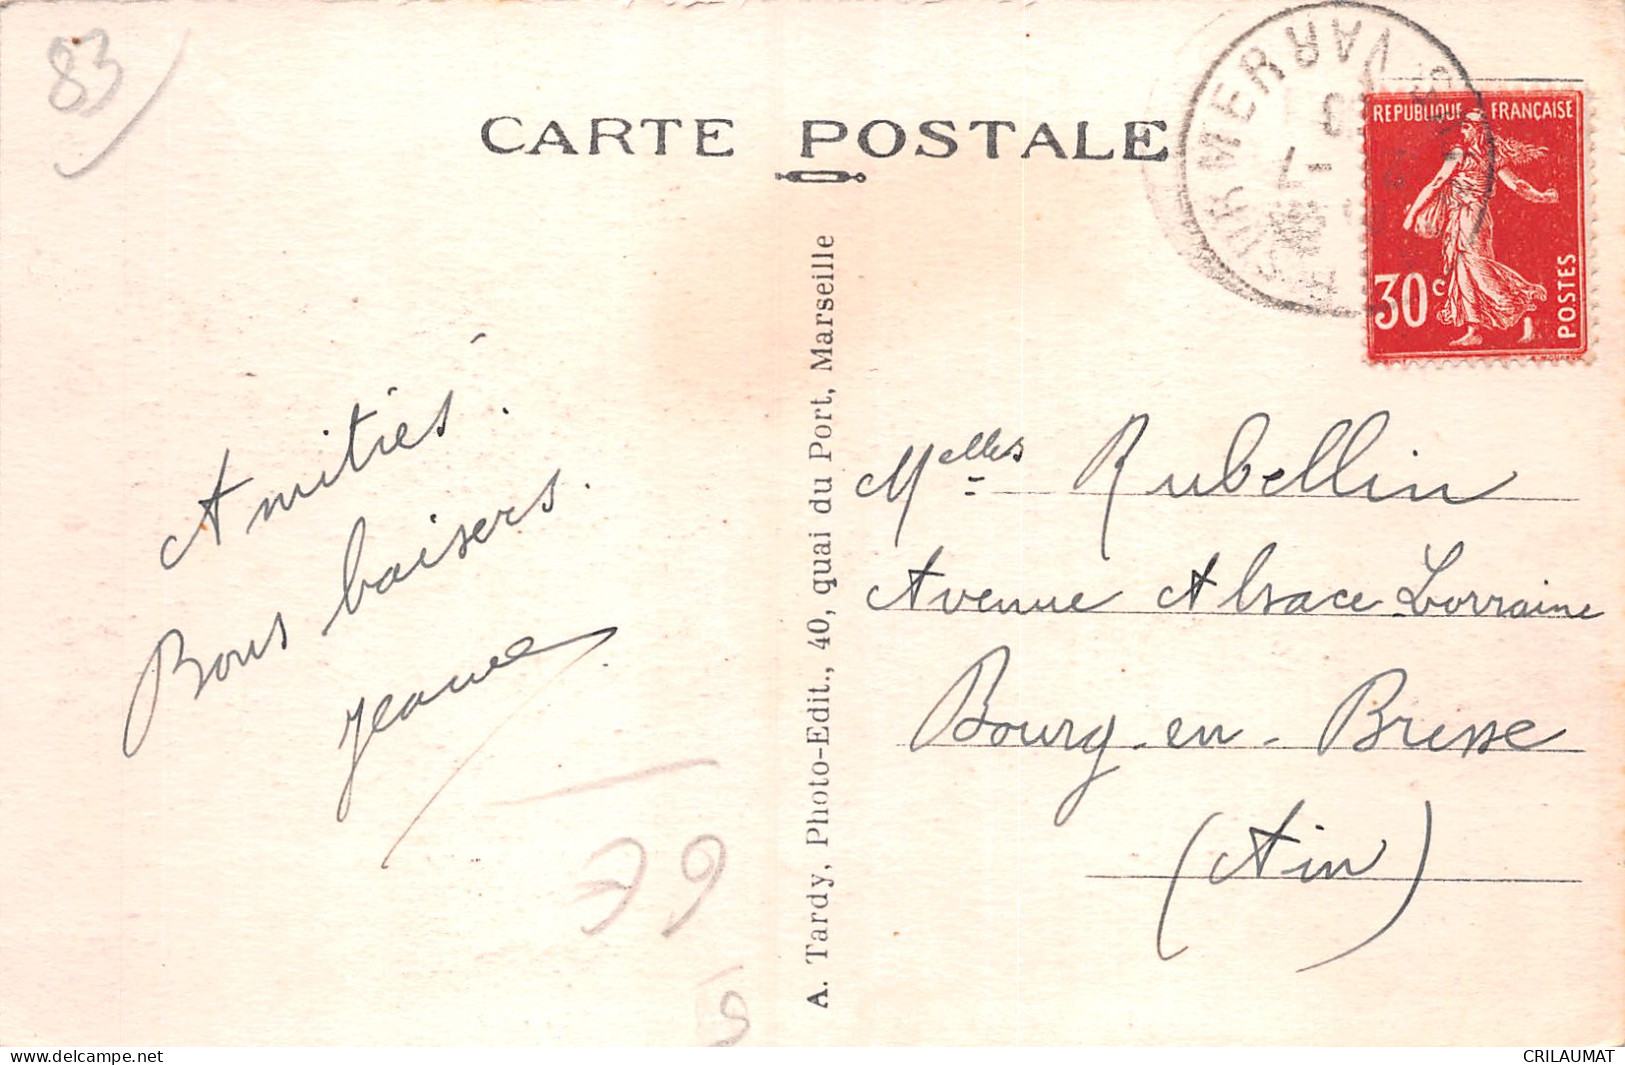 83
CARTE POSTALE
SUR MER VAR
RÉPUBLIQUE FRANÇAISE
30 c
POSTES
Amitiés.
Bons baisers.
Jeanne
A. Tardy, Photo-Edit., 40, quai du Port, Marseille
Melles Rubellin
Avenue Alsace Lorraine
Bourg-en-Bresse
(Ain)
delcampe.net
CRILAUMAT